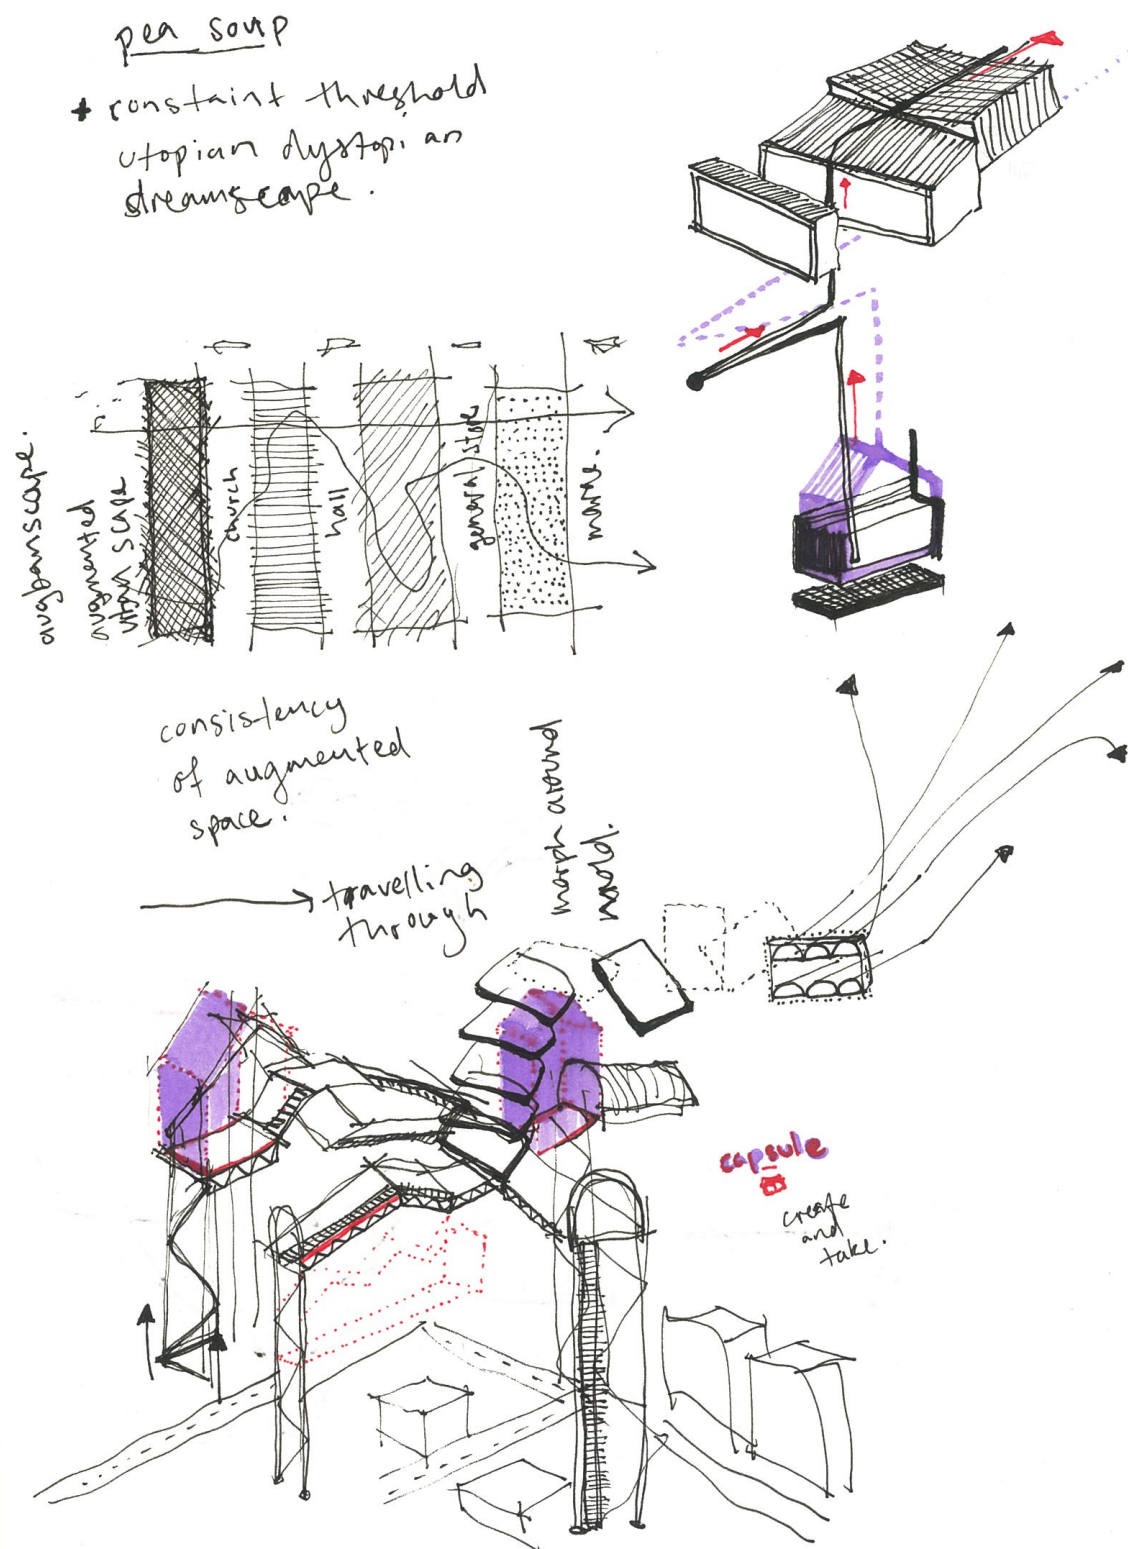 pea soup
+ constaint threshold
utopian dystopian
dreamscape.
augbanscape.
augmented
urban scape
church
hall
general store
manse.
consistency
of augmented
space.
travelling
through
morph around
mold.
capsule
create
and
take.